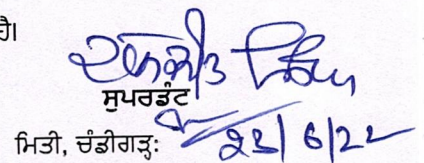 ਹੈ।
ਸੁਪਰਡੰਟ
ਮਿਤੀ, ਚੰਡੀਗੜ੍ਹ: 23/6/22